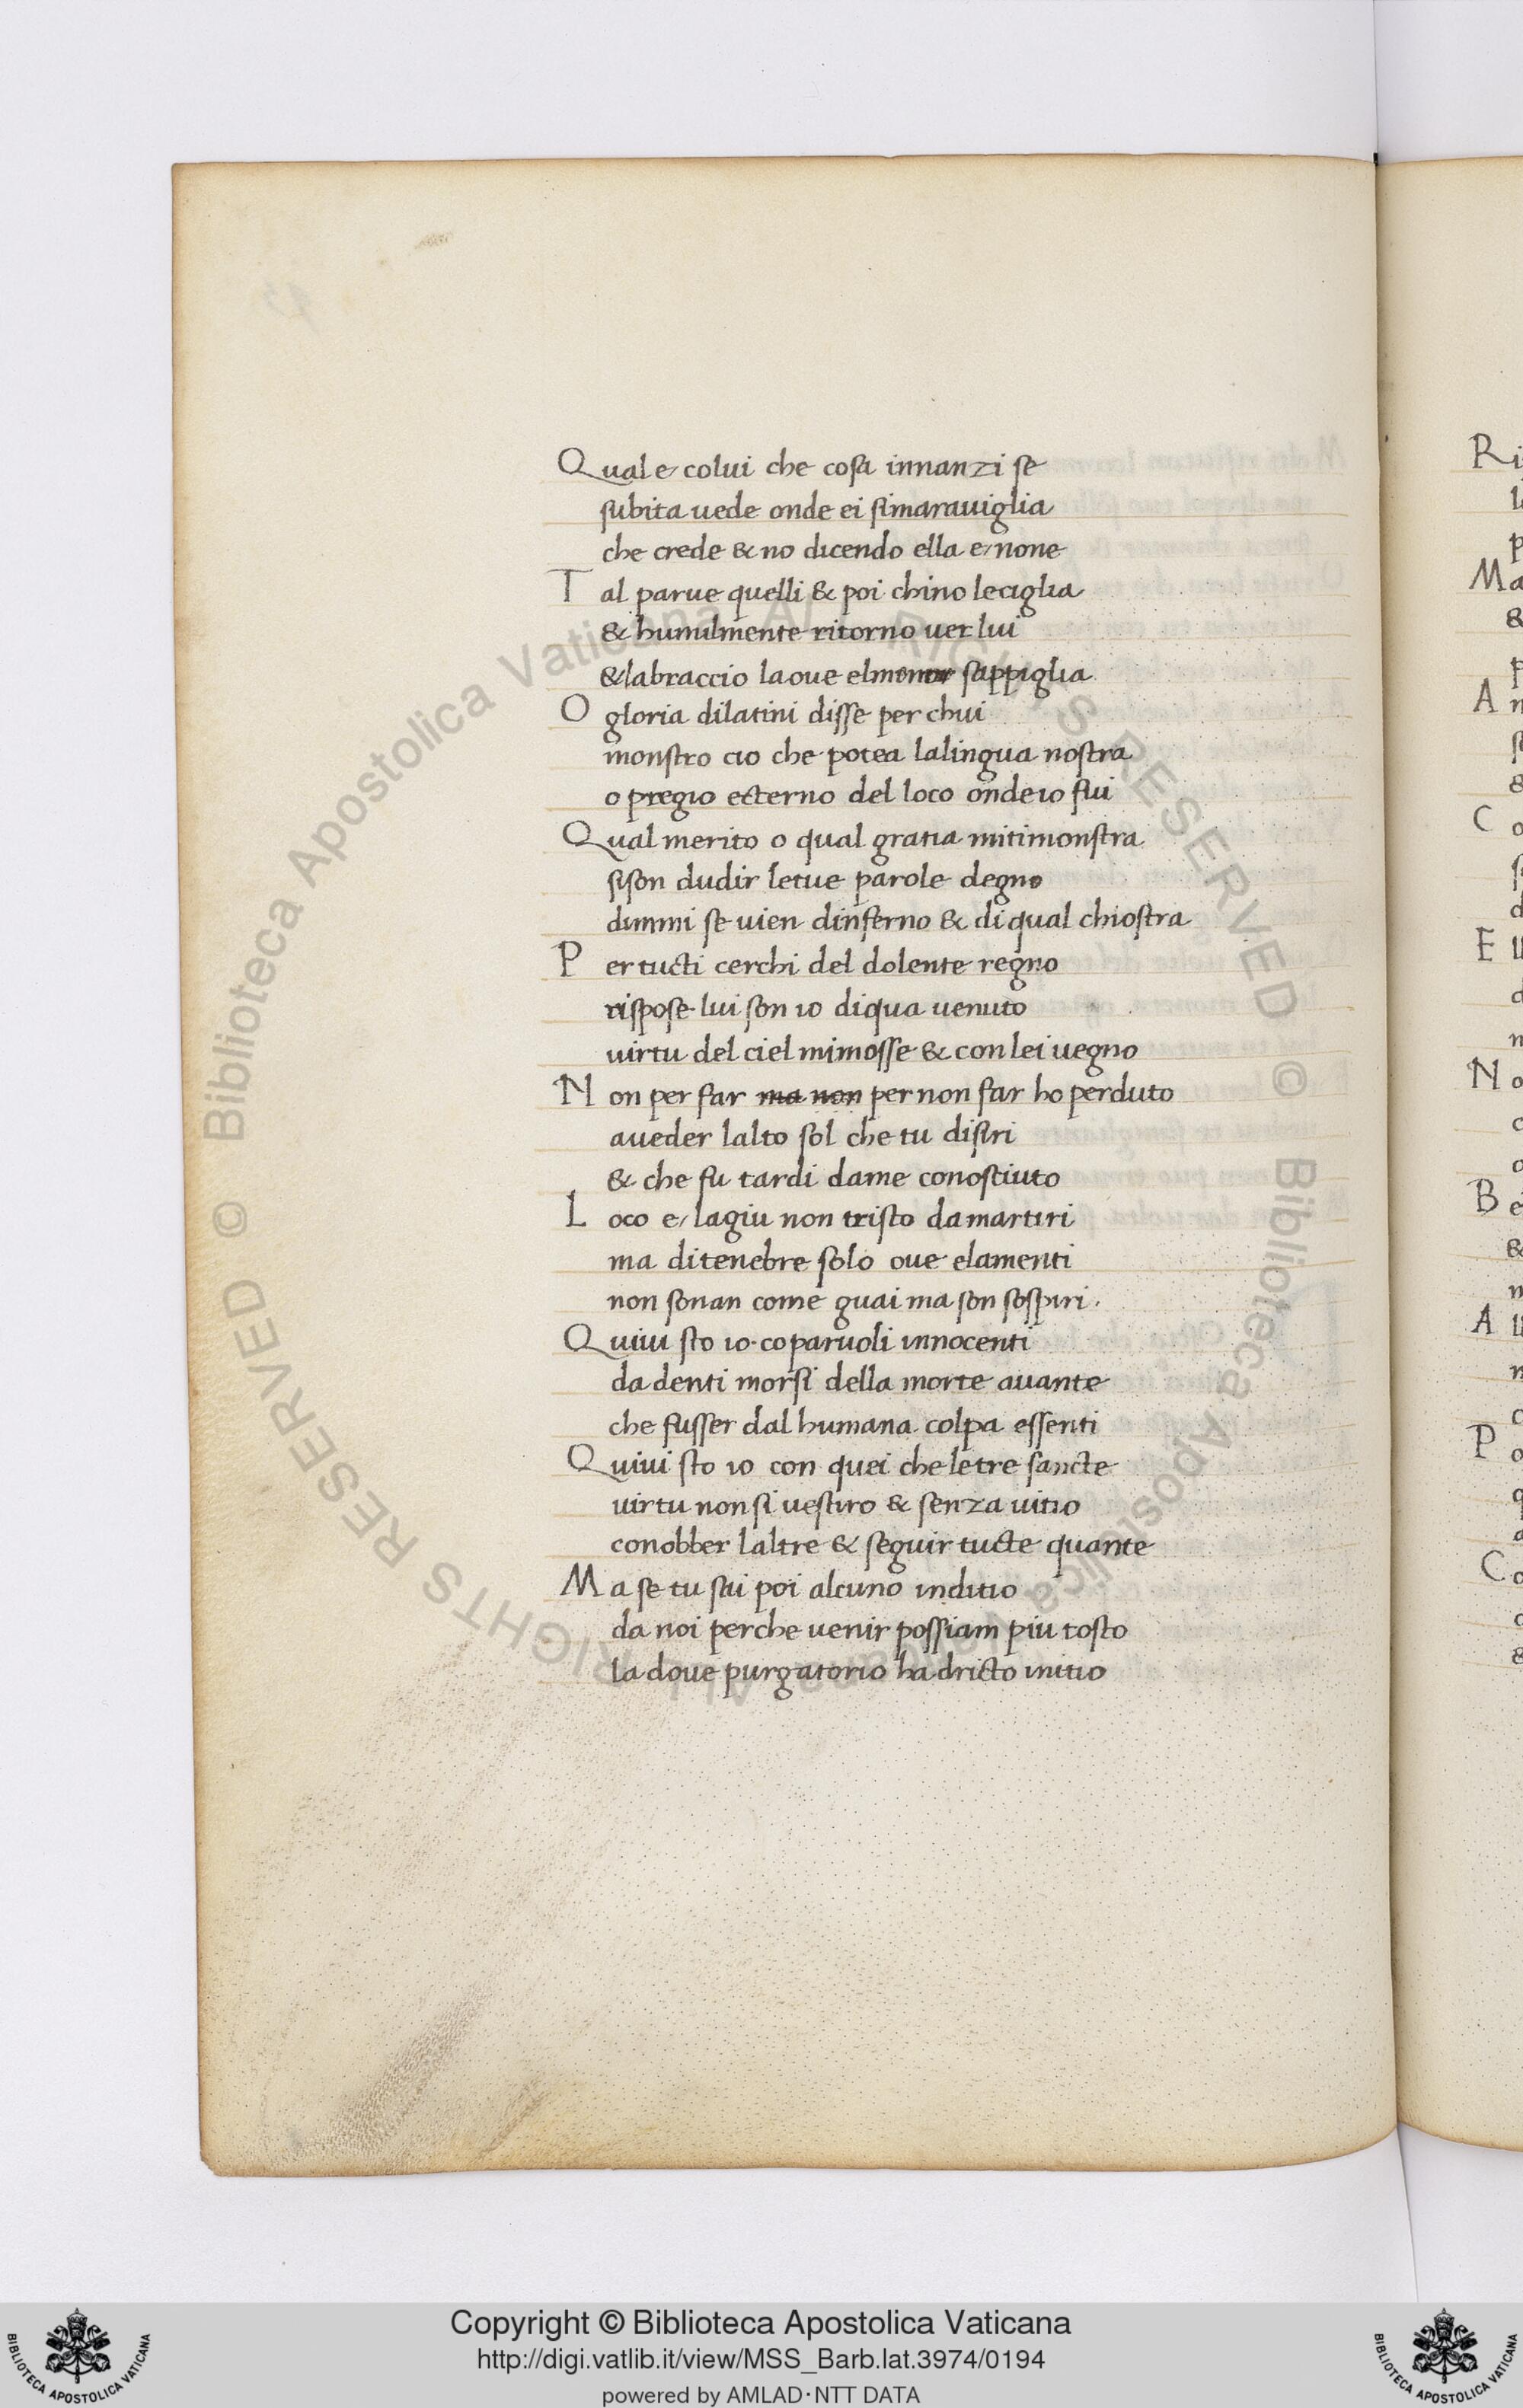 Qual e colui che cosa innanzi se
subita uede onde ei simarauiglia
che crede & no dicendo ella e none
Tal parue quelli & poi chino leciglia
& humilmente ritorno uer lui
& labraccio laoue elmenor sappiglia
O gloria dilatini disse per chui
monstro cio che potea lalingua nostra
o pregio ecterno del loco onde io fui
Qual merito o qual gratia mitimonstra
sison dudir letue parole degno
dimmi se uien dinferno & di qual chiostra
Per tucti cerchi del dolente regno
rispose lui son io diqua uenuto
uirtu del ciel mimosse & con lei uegno
Non per far ma non per non far ho perduto
aueder lalto sol che tu disiri
& che fu tardi dame conosciuto
Loco e lagiu non tristo da martiri
ma ditenebre solo oue elamenti
non sonan come guai ma son sospiri.
Quiui sto io co paruoli innocenti
da denti morsi della morte auante
che fusser dal humana colpa essenti
Quiui sto io con quei che letre sancte
uirtu non si uestiro & senza uitio
conobber laltre & seguir tucte quante
Ma se tu sai poi alcuno inditio
da noi perche uenir possiam piu tosto
la doue purgatorio ha dricto initio
Ri
Ma
&
A
&
C
Ell
No
Be
&
All
Po
Co
&
© Biblioteca Apostolica Vaticana ALL RIGHTS RESERVED © Biblioteca Apostolica Vaticana ALL RIGHTS RESERVED
Copyright © Biblioteca Apostolica Vaticana
http://digi.vatlib.it/view/MSS_Barb.lat.3974/0194
powered by AMLAD·NTT DATA
BIBLIOTECA APOSTOLICA VATICANA
BIBLIOTECA APOSTOLICA VATICANA